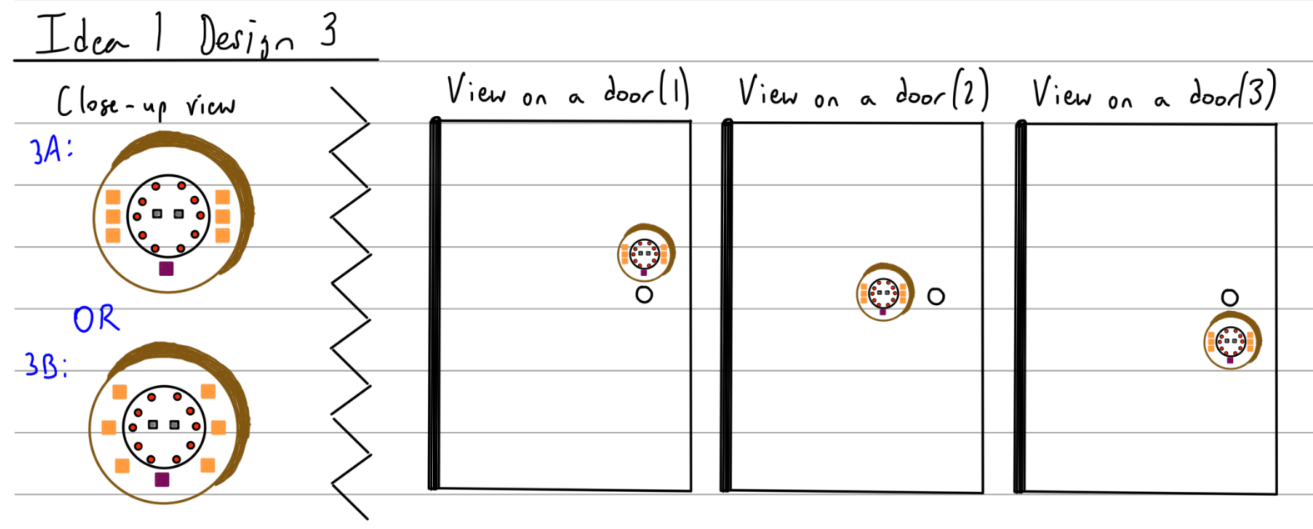 Idea 1 Design 3
Close-up view
3A:
OR
3B:
View on a door(1)
View on a door(2)
View on a door(3)